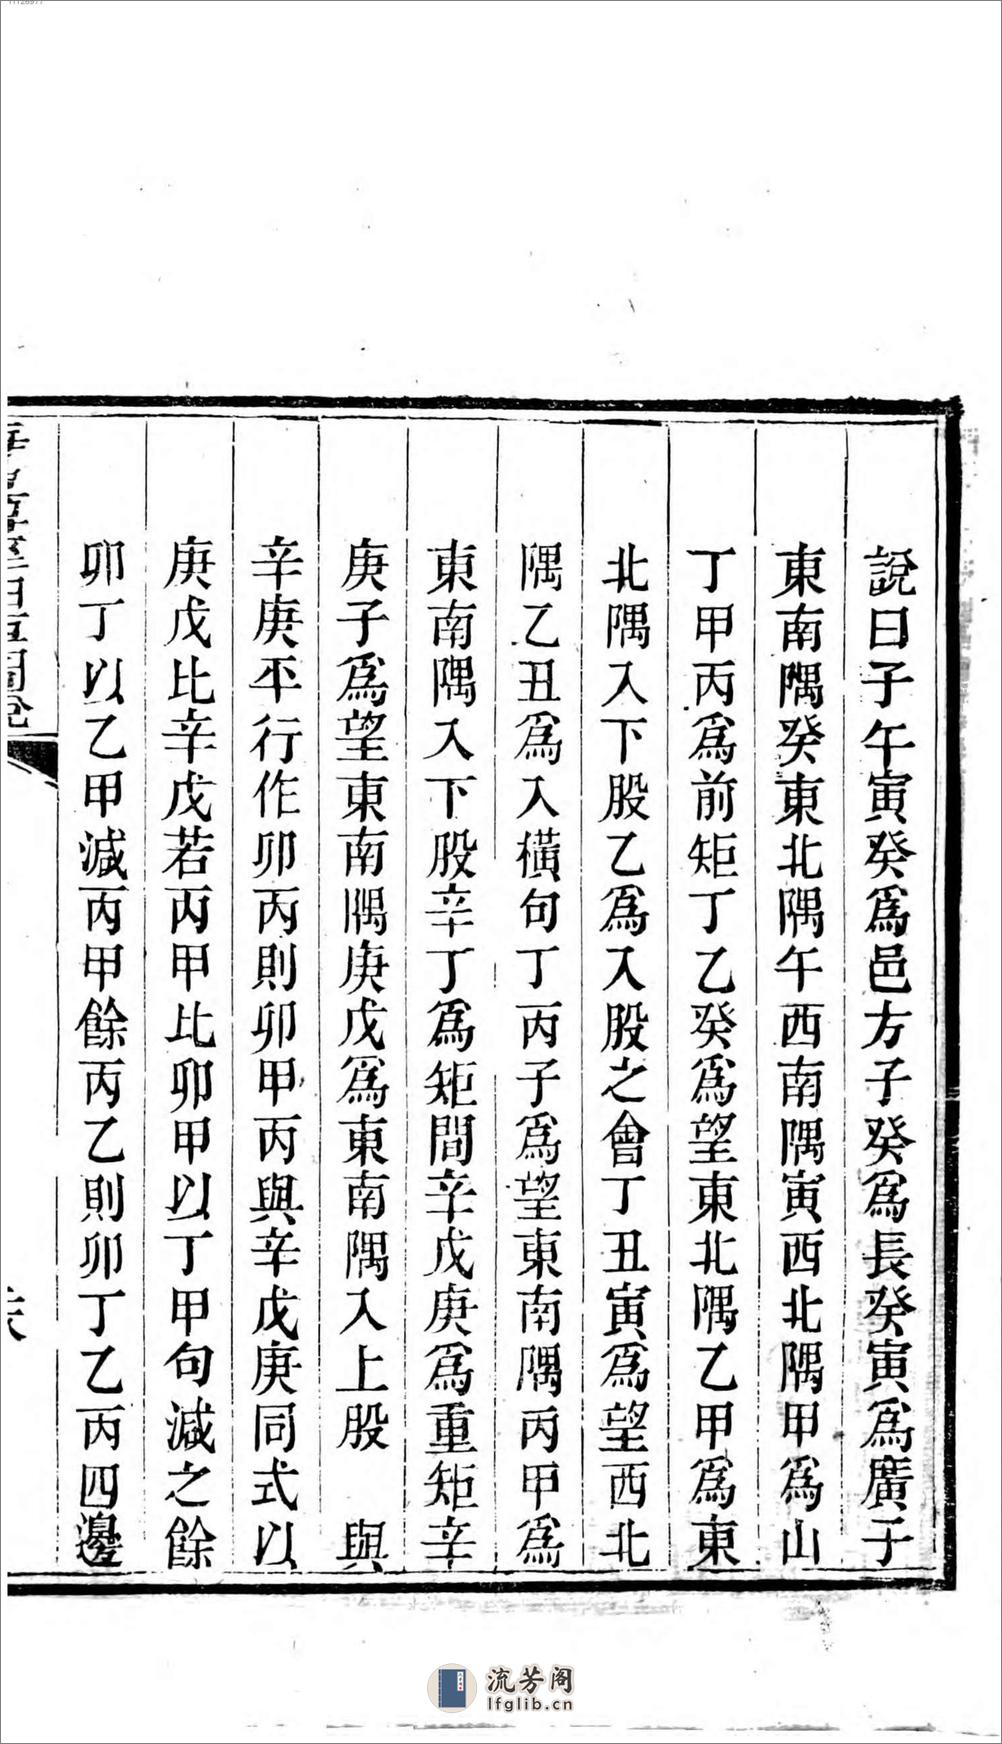 說曰子午寅癸爲邑方子癸爲長癸寅爲廣子
東南隅癸東北隅午西南隅寅西北隅甲爲山
丁甲丙爲前矩丁乙癸爲望東北隅乙甲爲東
北隅入下股乙爲入股之會丁丑寅爲望西北
隅乙丑爲入橫句丁丙子爲望東南隅丙甲爲
東南隅入下股辛丁爲矩間辛戊庚爲重矩辛
庚子爲望東南隅庚戊爲東南隅入上股 與
辛庚平行作卯丙則卯甲丙與辛戊庚同式以
庚戊比辛戊若丙甲比卯甲以丁甲句減之餘
卯丁以乙甲減丙甲餘丙乙則卯丁乙丙四邊
海島算經細草圖說
六
流芳阁
lfglib.cn
11128977